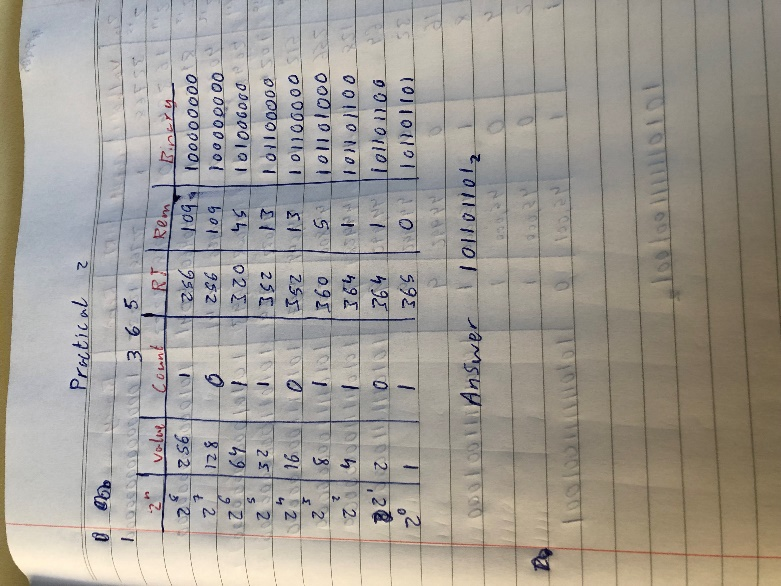 Practical 2
1 365
2ⁿ Value Count RT Rem Binary
2⁸ 256 1 256 109 100000000
2⁷ 128 0 256 109 100000000
2⁶ 64 1 320 45 101000000
2⁵ 32 1 352 13 101100000
2⁴ 16 0 352 13 101100000
2³ 8 1 360 5 101101000
2² 4 1 364 1 101101100
2¹ 2 0 364 1 101101100
2⁰ 1 1 365 0 101101101
Answer 101101101₂